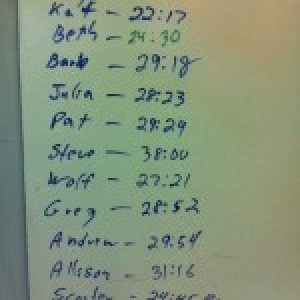 Kat - 22:17
Beth - 24:30
Barb - 29:18
Julia - 28:23
Pat - 28:29
Steve - 38:00
Wolf - 27:21
Greg - 28:52
Andrew - 29:54
Allison - 31:16